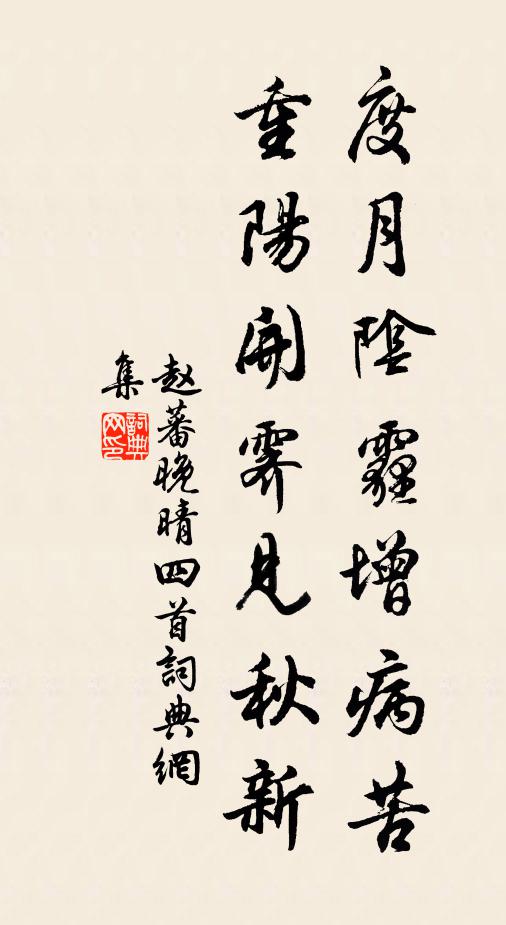 度月陰霾增病苦
重陽開霽見秋新
赵蕃晚晴四首詞典網
集
詞典
网印